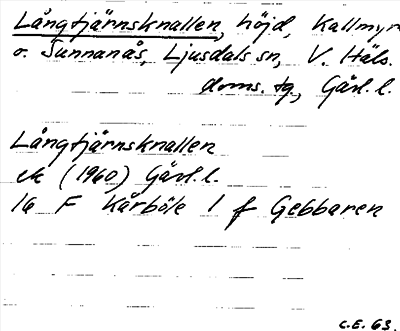 Långtjärnsknallen, höjd, Kallmyr
o. Sunnanås, Ljusdals sn, V. Häls.
doms. tg, Gävl. l.
Långtjärnsknallen
ek (1960) Gävl. l.
16 F Kårböle 1 f Gebbaren
C.E. 63.